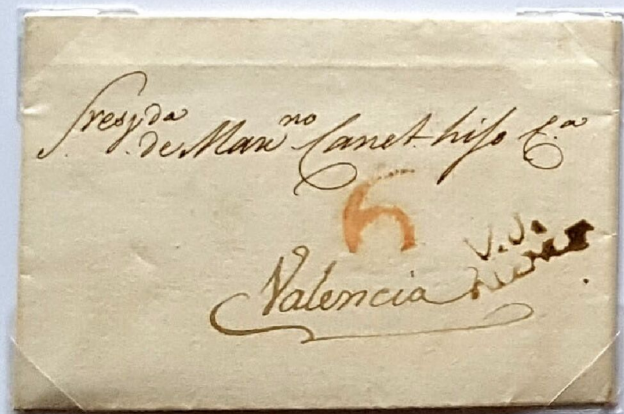 Sres. Vda
de Marno Canet hijo Ca
6
Valencia
V.J.